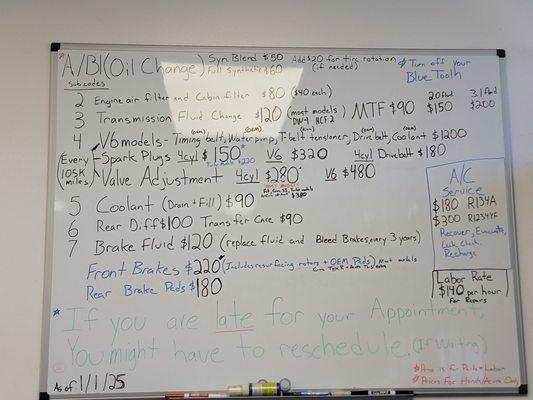 * A/B1 (Oil Change) Syn Blend $50 Full Synthetic $60 Add $20 for tire rotation (if needed)
* Turn off your Blue Tooth
Sub codes
2 Engine air filter and Cabin filter $80 ($40 each)
3 Transmission Fluid Change $120 (most models) DW-1 HCF-2 MTF $90 2.0 fluid $150 3.1 fluid $200
4 V6 models - Timing belt, Water pump, T-belt tensioner, Drive belt, Coolant $1200
(Every 105K miles)
Spark Plugs 4cyl $150* V6 $320 4cyl Drivebelt $180
Valve Adjustment 4cyl $280* V6 $480
5 Coolant (Drain + Fill) $90
6 Rear Diff $100 Transfer Case $90
7 Brake Fluid $120 (replace fluid and Bleed Brakes, every 3 years)
Front Brakes $220 (Includes resurfacing rotors + OEM Pads) Most models
Rear Brake Pads $180
A/C
Service
$180 R134A
$300 R1234YF
Recover, Evacuate,
Leak Check,
Recharge
Labor Rate
$140 per hour
For Repairs
* If you are late for your Appointment,
You might have to reschedule. (If Waiting)
* Price is for Parts + Labor
* Prices For Honda/Acura Only
As of 1/1/25